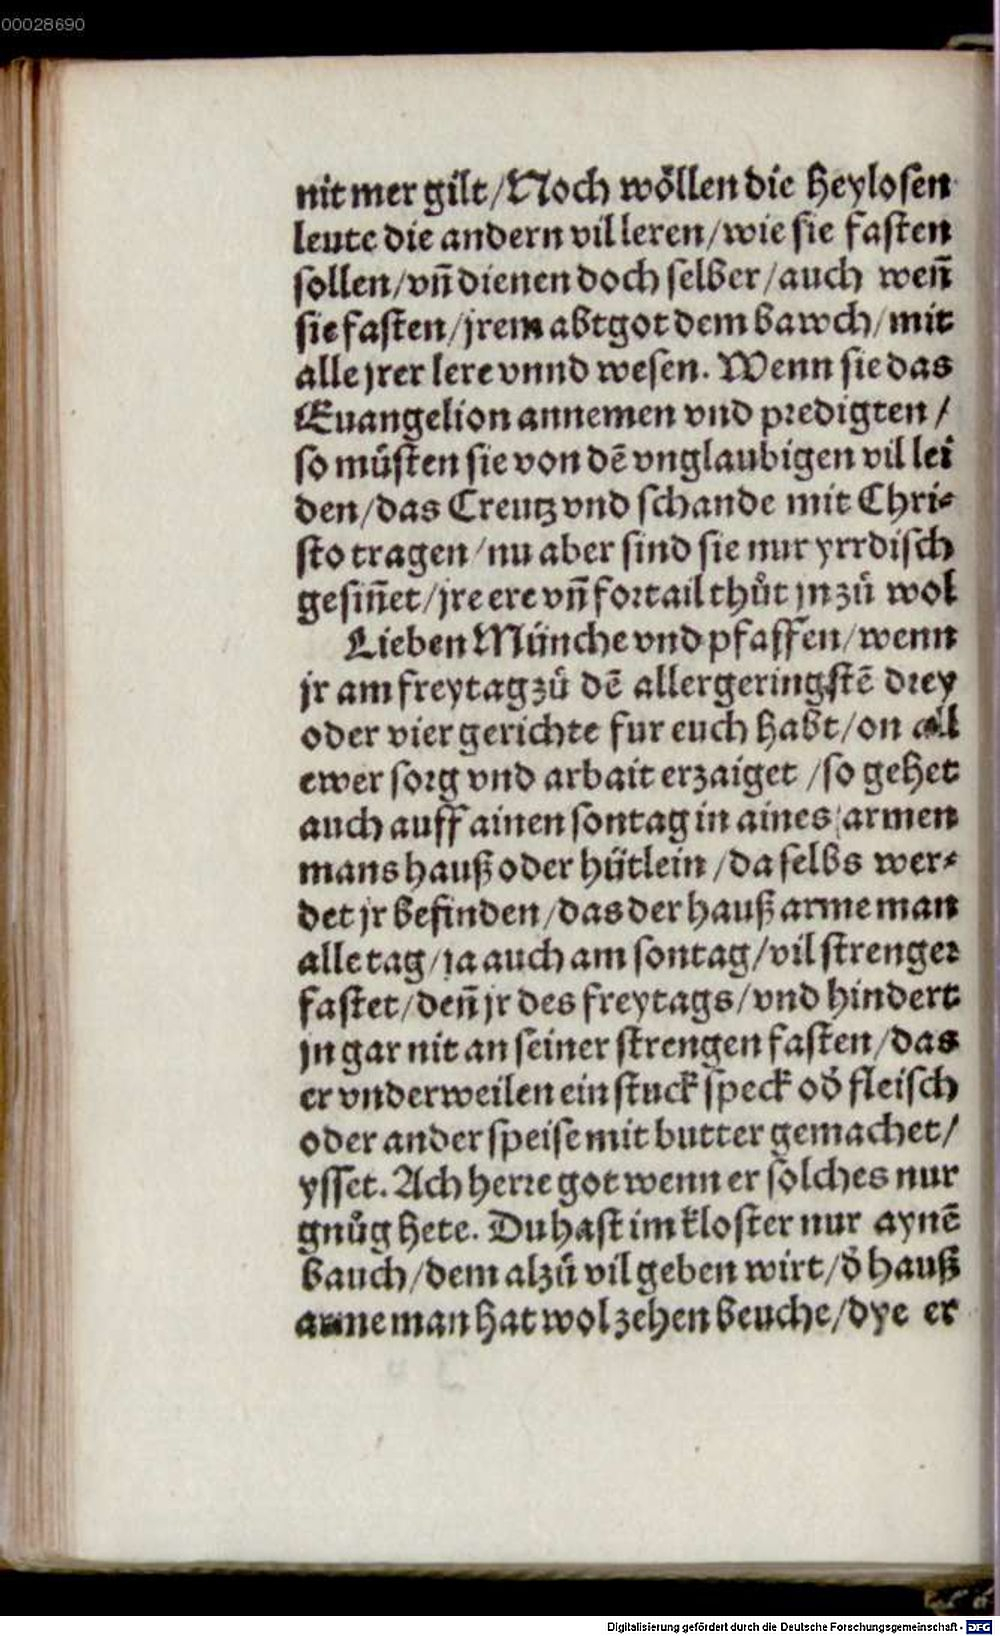 00028690
nit mer gilt/Noch wöllen die heylosen
leute die andern vil leren/wie sie fasten
sollen/vñ dienen doch selber/auch weñ
sie fasten/jrem abtgot dem bawch/mit
alle jrer lere vnnd wesen. Wenn sie das
Euangelion annemen vnd predigten/
so müsten sie von dẽ vnglaubigen vil lei
den/das Creutz vnd schande mit Chri⸗
sto tragen/nu aber sind sie nur yrrdisch
gesiñet/jre ere vñ fortail thůt jn zů wol
Lieben Münche vnd pfaffen/wenn
jr am freytag zů dẽ allergeringstẽ drey
oder vier gerichte fur euch habt/on all
ewer sorg vnd arbait erzaiget/so gehet
auch auff ainen sontag in aines armen
mans hauß oder hütlein/da selbs wer⸗
det jr befinden/das der hauß arme man
alle tag/ja auch am sontag/vil strenger
fastet/deñ jr des freytags/vnd hindert
jn gar nit an seiner strengen fasten/das
er vnderweilen ein stuck speck od̕ fleisch
oder ander speise mit butter gemachet/
ysset. Ach herre got wenn er sölches nur
gnůg hete. Du hast im kloster nur aynẽ
bauch/dem alzů vil geben wirt/d̕ hauß
arme man hat wol zehen beuche/dye er
Digitalisierung gefördert durch die Deutsche Forschungsgemeinschaft - DFG